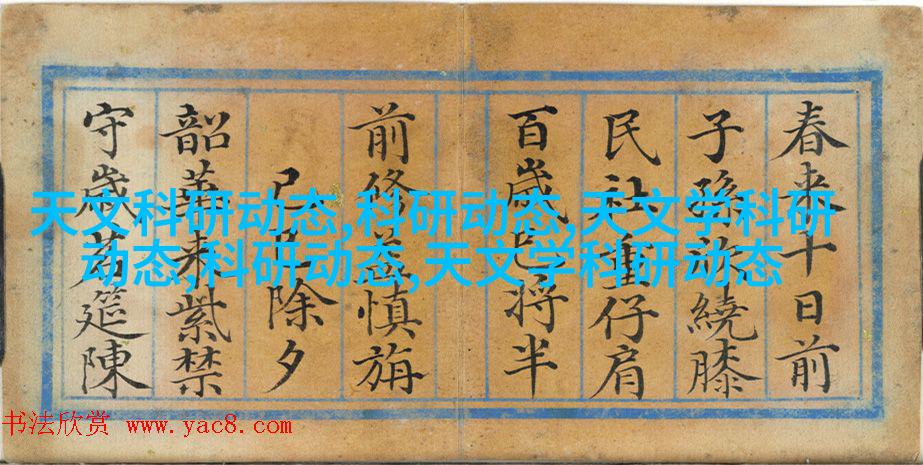 春来十日前
子孫繞膝
民社重仔肩
百歲已将半
前修益慎旃
己巳除夕
韶華来紫禁
守歲筵陳
天文科研动态,科研动态,天文学科研
动态,科研动态,天文学科研动态
书法欣赏 www.yac8.com